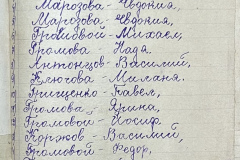 Марозова - Евдокия,
Марозова - Евдокия,
Громовой - Михаел,
Громова - Надя.
Антонцов - Василий,
Ключова - Милания.
Грищенко - Павел,
Громова - Ярина,
Громовой - Иосиф.
Коржов - Василий,
Громовой - Федор,